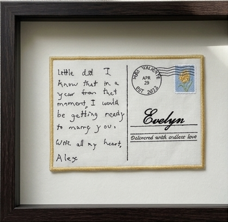 Little did I
know that in a
year from that
moment, I would
be getting ready
to marry you.
With all my heart,
Alex
APR
29
EST. 2023
Evelyn
Delivered with endless love